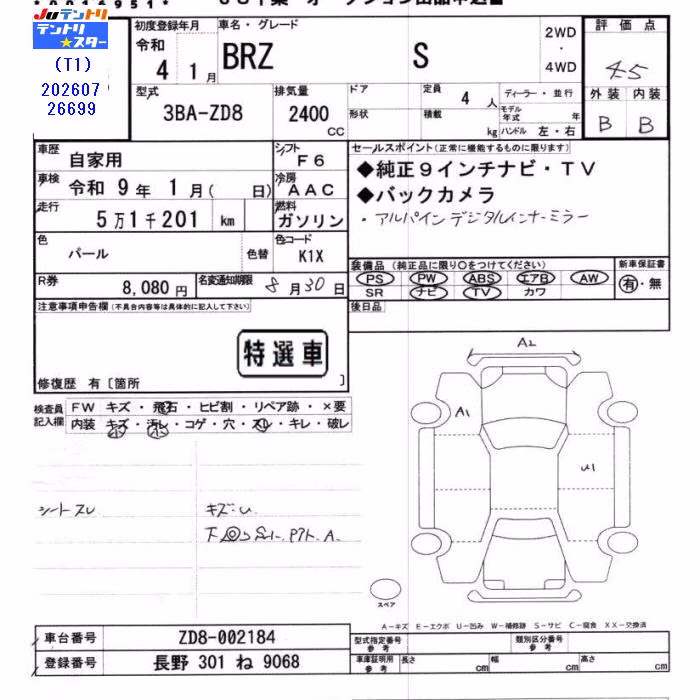 JUテントリ
テントリ★スター
(T1)
202607
26699
初度登録年月
令和
4 1月
車名・グレード
BRZ S
2WD
・
4WD
評価点
4.5
外装 内装
B B
型式
3BA-ZD8
排気量
2400
CC
ドア
形状
定員
4 人
積載
kg
ディーラー・並行
モデル年式 年
ハンドル 左・右
車歴
自家用
シフト
F6
車検
令和 9年 1月( 日)
冷房
AAC
走行
5万1千201 km
燃料
ガソリン
色
パール
色替
色コード
K1X
R券
8,080円
名変通知期限
8月30日
セールスポイント(正常に機能するものに限ります)
◆純正9インチナビ・TV
◆バックカメラ
・アルパインデジタルインナーミラー
装備品(純正品に限り○をつけてください)
PS PW ABS エアB AW
SR ナビ TV カワ
新車保証書
有・無
後日品
注意事項申告欄(不具合内容等は具体的に記入して下さい)
特選車
修復歴 有〔箇所 〕
検査員記入欄
FW キズ・飛石・ヒビ割・リペア跡・×要
内装 キズ・汚レ・コゲ・穴・スレ・キレ・破レ
小 小
シートスレ
キズ・U
A2
A1
U1
スペア
A-キズ E-エクボ U-凹み W-補修跡 S-サビ C-腐食 XX-交換済
車台番号 ZD8-002184
登録番号 長野 301 ね 9068
型式指定番号 参考
類別区分番号 参考
車庫証明用 参考
長さ cm 幅 cm 高さ cm